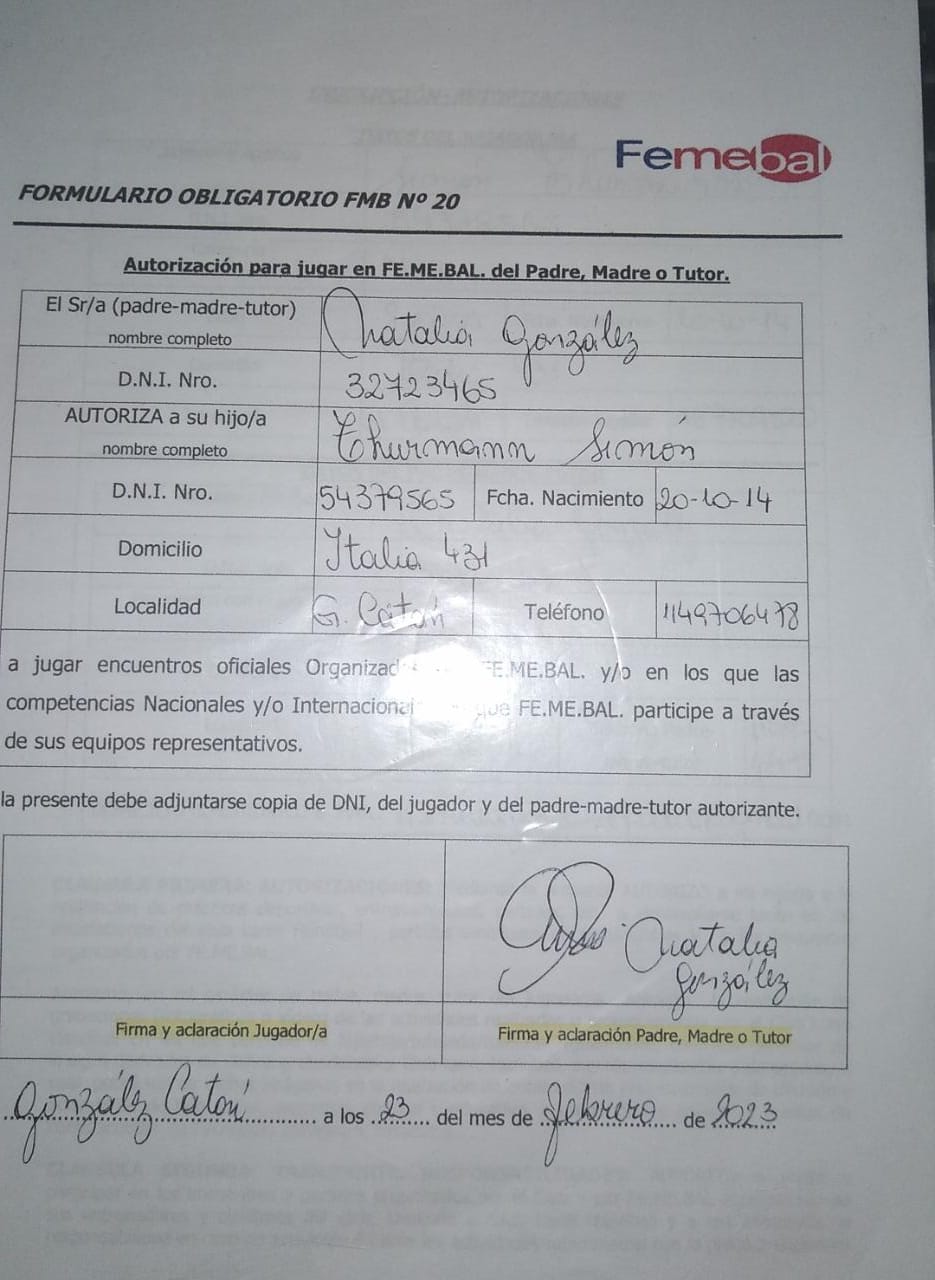 Femebal
FORMULARIO OBLIGATORIO FMB Nº 20
Autorización para jugar en FE.ME.BAL. del Padre, Madre o Tutor.
El Sr/a (padre-madre-tutor)
nombre completo
Natalia González
D.N.I. Nro.
32723465
AUTORIZA a su hijo/a
nombre completo
Thurmann Simón
D.N.I. Nro.
54379565
Fcha. Nacimiento
20-10-14
Domicilio
Italia 431
Localidad
G. Catán
Teléfono
1149706478
a jugar encuentros oficiales FE.ME.BAL. y/o en los que las
competencias Nacionales y/o que FE.ME.BAL. participe a través
de sus equipos representativos.
la presente debe adjuntarse copia de DNI, del jugador y del padre-madre-tutor autorizante.
Natalia
González
Firma y aclaración Jugador/a
Firma y aclaración Padre, Madre o Tutor
González Catán a los 23 del mes de febrero de 2023